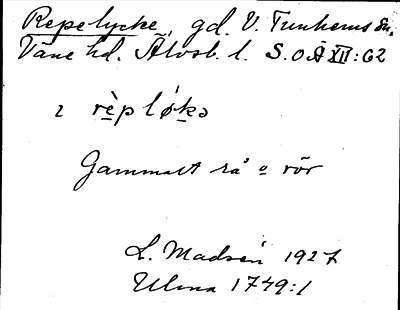 Repelycke, gd. V. Tunhems sn,
Väne hd. Älvsb. l. S.O.Å XII:62
2 rèp lǿkə
Gammalt rå o rör
L. Madsén 1927
Ulma 1749:1